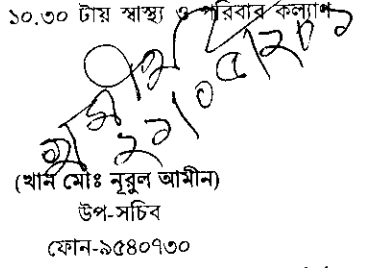 ১০.৩০ টায় স্বাস্থ্য ও পরিবার কল্যাণ
(খান মোঃ নূরুল আমীন)
উপ-সচিব
ফোন-৯৫৪০৭৩০